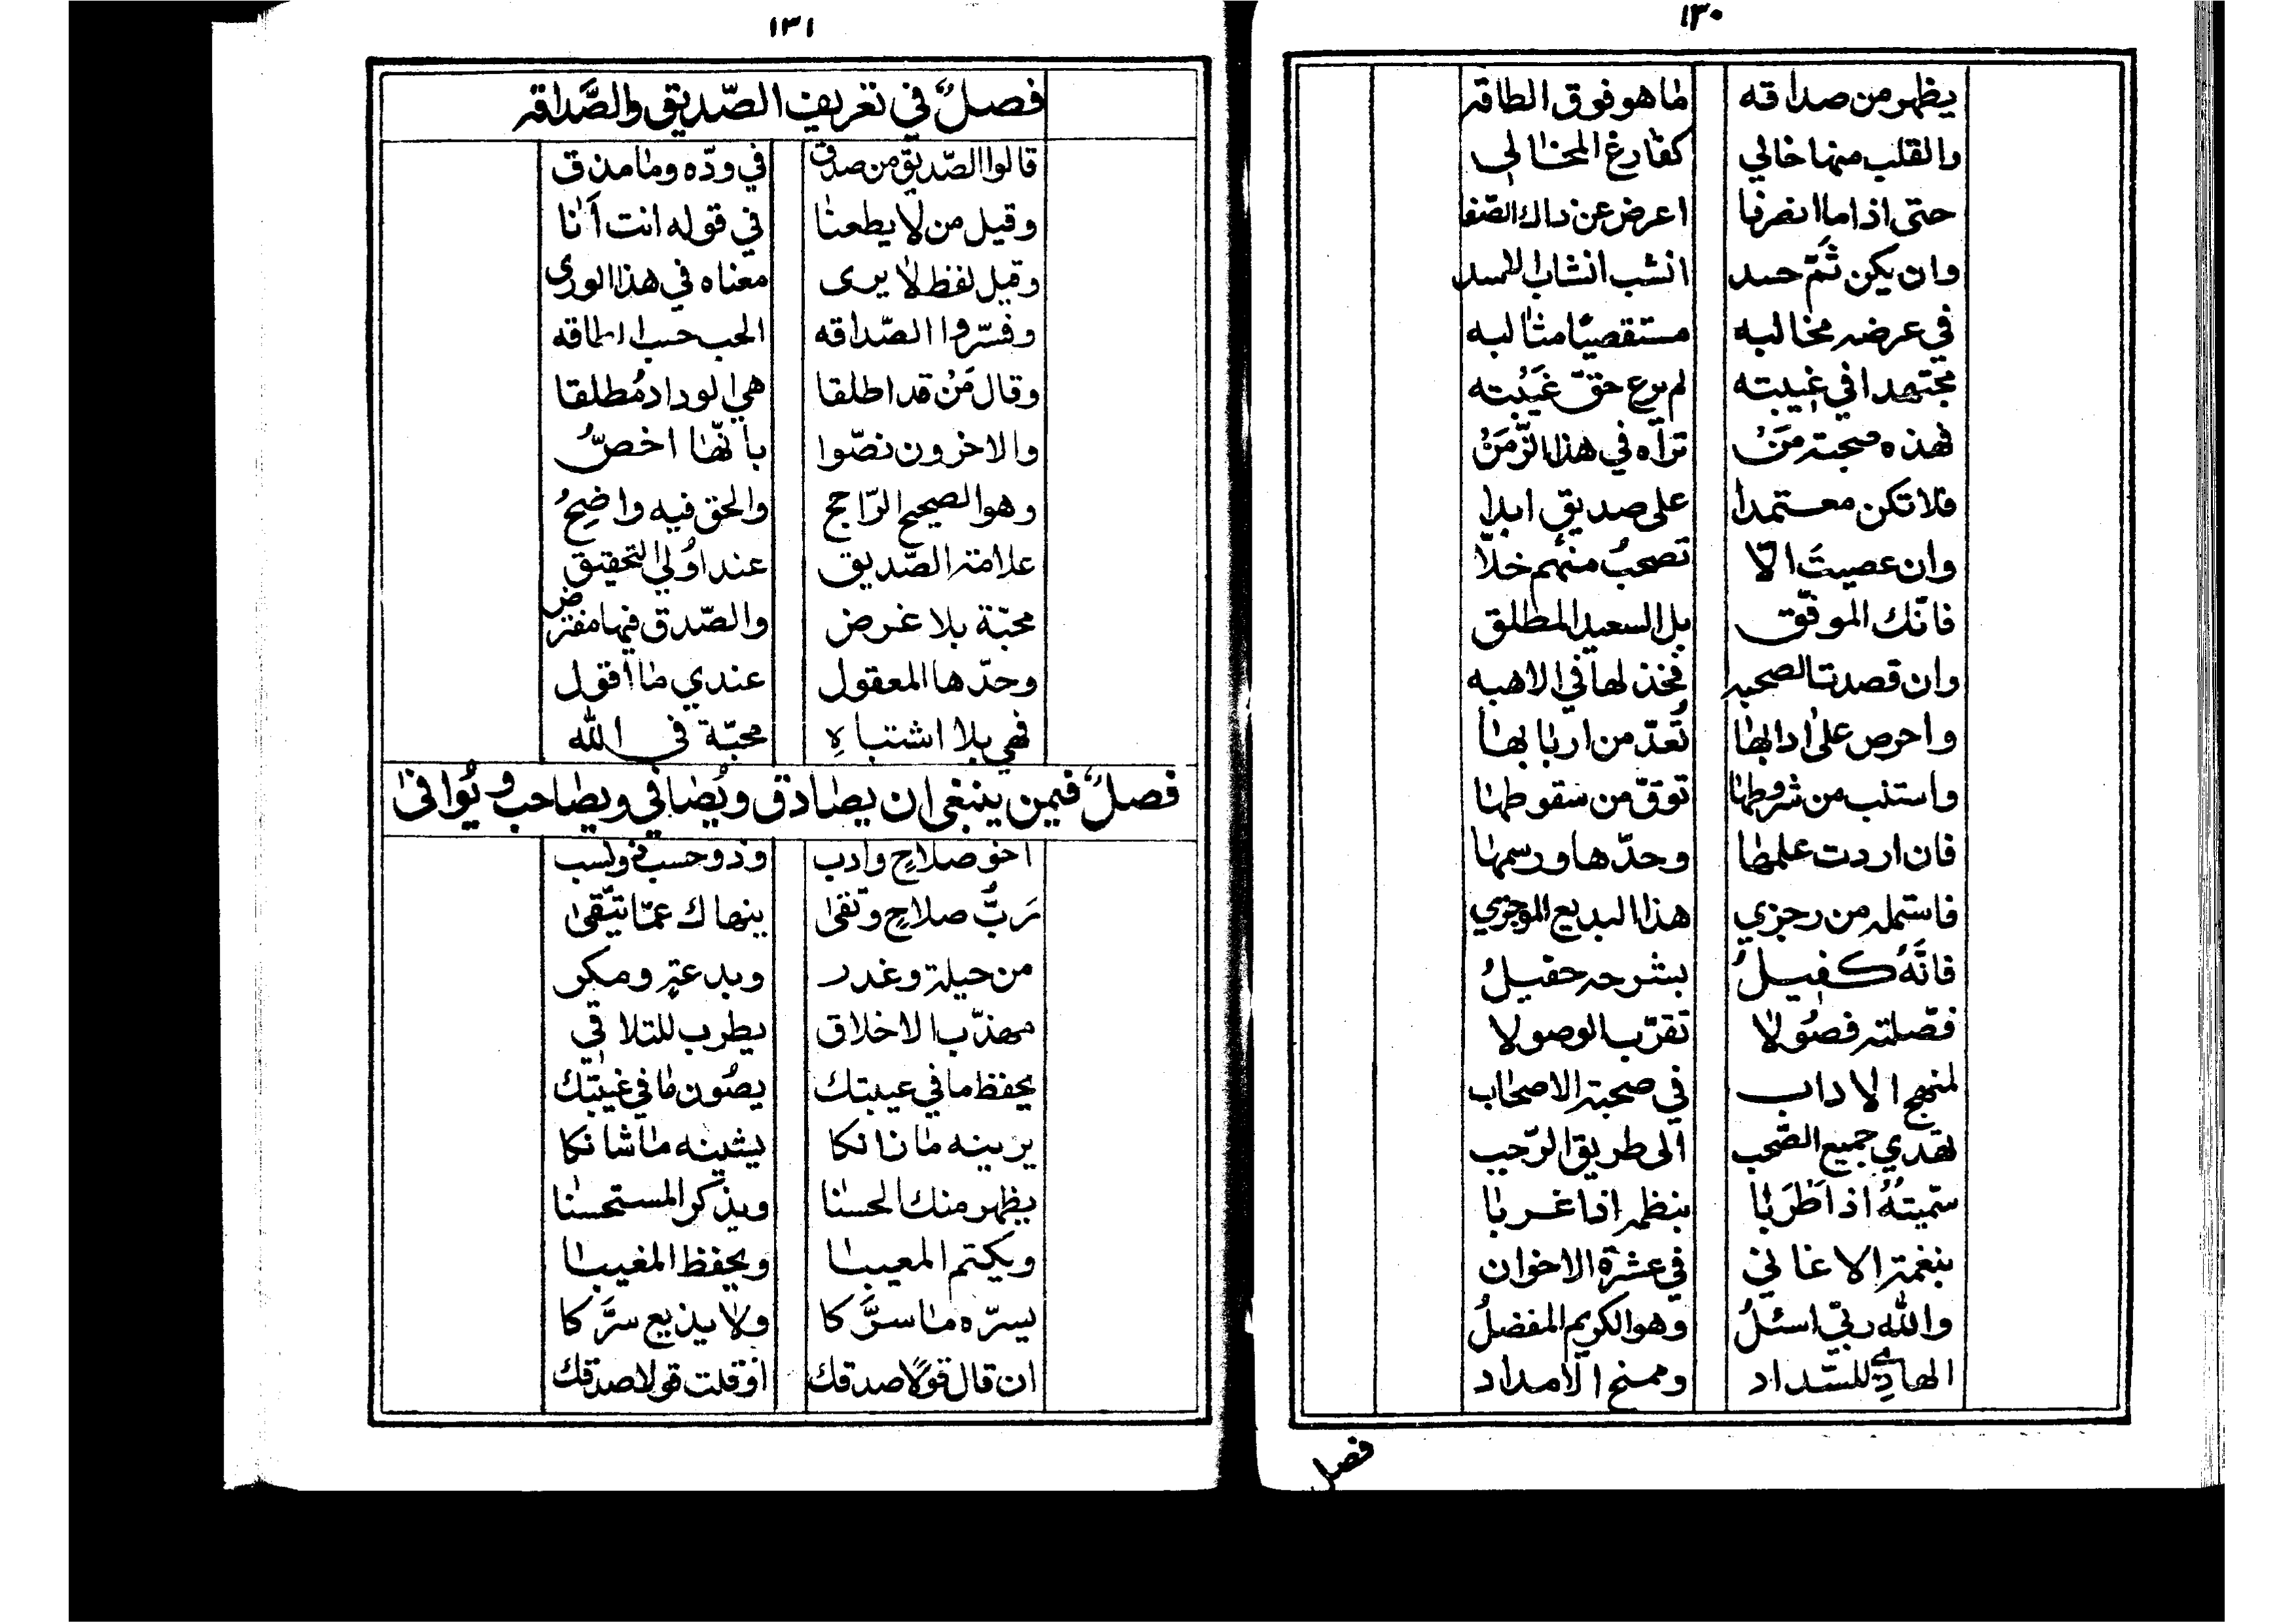 ١٣٠
يظهر من صداقه ماهو فوق الطاقه
والقلب منها خالي كفارغ المخالي
حتى اذا ما انصرفا اعرض عن ذاك الصفا
وان يكن ثَمّ حسد انشب انشاب الاسد
في عرضه مخالبه مستقصيا مثالبه
مجتهدا في غيبته لم يرع حقّ غَيْبته
فهذه صحبة مَنْ تراه في هذا الزّمَنْ
فلا تكن معتمدا على صديق ابدا
وان عصيتَ الّا تصحبُ منهم خلّا
فانّك الموفّق بل السعيد المطلق
وان قصدت الصحبه فخذ لها في الاهبه
واحرص على ادابها تُعدّ من اربابها
واستنب من شروطها توقّ من سقوطها
فان اردت علمها وحدّها ورسمها
فاستمله من رجزي هذا البديع الموجزي
فانّهُ كفيلُ بشرحه حفيلُ
فصّلته فصُولا تقرّب الوصولا
لمنهج الاداب في صحبة الاصحاب
تهدي جميع الصّحب الى طريق الرّحب
سمّيتهُ اذ اَطْرَبا بنظمه اذا غربا
بنغمة الاغاني في عشرة الاخوان
والله ربّي اسئلُ وهو الكريم المفضلُ
الهادي للسّداد وممنح الامداد
فصل
١٣١
فصلٌ في تعريف الصّديق والصَّداقه
قالوا الصّديق من صدق في ودّه وما مذق
وقيل من لا يطعنا في قوله انت اَنا
وقيل لفظ لا يرى معناه في هذا الورى
وفسّروا الصّداقه الحب حسب الطاقه
وقال مَنْ قد اطلقا هي الوداد مُطلقا
والاخرون نصّوا بانّها اخصُّ
وهو الصحيح الرّاجح والحق فيه واضِحُ
علامة الصّديق عند اُولي التحقيق
محبّة بلا غرض والصّدق فيها مفترض
وحدّها المعقول عندي ما اقول
فهي بلا اشتباهِ محبّة في الله
فصلٌ فيمن ينبغي ان يصادق ويُصافي ويصاحب ويُوافى
اخو صلاحٍ وادب وذو حسب ونسب
رَبُّ صلاحٍ وتقى ينهاك عمّا تتّقى
من حيلة وغدر وبدعةٍ ومكر
مهذّب الاخلاق يطرب للتلاقي
يحفظ ما في عيبتك يصُون ما في غيبتك
يزينه ما زانكا يشينه ما شانكا
يظهر منك الحسنا ويذكر المستحسنا
ويكتم المعيبا ويحفظ المغيبا
يسرّه ما سرَّكا ولا يذيع سرَّكا
ان قال قولا صدقك او قلت قولا صدقك